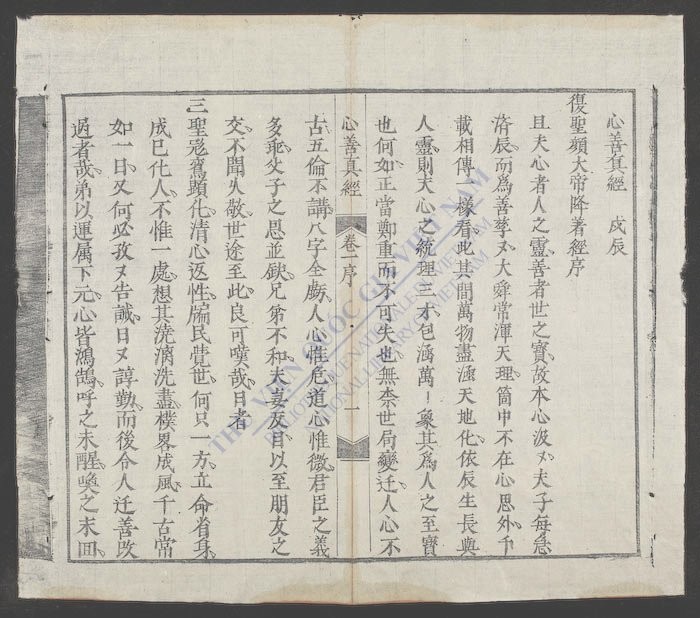 心善真經 戍辰
復聖顏大帝降著經序
且夫心者人之靈善者世之寶故本心汲〻夫子每急
濟辰而爲善孳〻大舜常渾天理箇中不在心思外千
載相傳一樣看此其間萬物盡涵天地化依辰生長與
人靈則夫心之統理三才包涵萬丨象其爲人之至寶
也何如正當鄭重而不可失也無柰世局變迁人心不
心善真經 卷一序 一
古五倫不講八字全虧人心惟危道心惟微君臣之義
多乖父子之恩並缺兄弟不和夫妻反目以至朋友之
交不聞久敬世途至此良可嘆哉日者
三聖冠鸞顕化清心返性牖民覺世何只一方立命省身
成巳化人不惟一處想其澆漓洗盡樸畧成風千古常
如一日又何必孜〻告誡日〻諄勤而後令人迁善改
過者哉弟以運属下元心皆鴻鵠呼之未醒喚之未囬
THƯ VIỆN QUỐC GIA VIỆT NAM
BIBLIOTHEQUE NATIONALE DU VIETNAM
NATIONAL LIBRARY OF VIETNAM